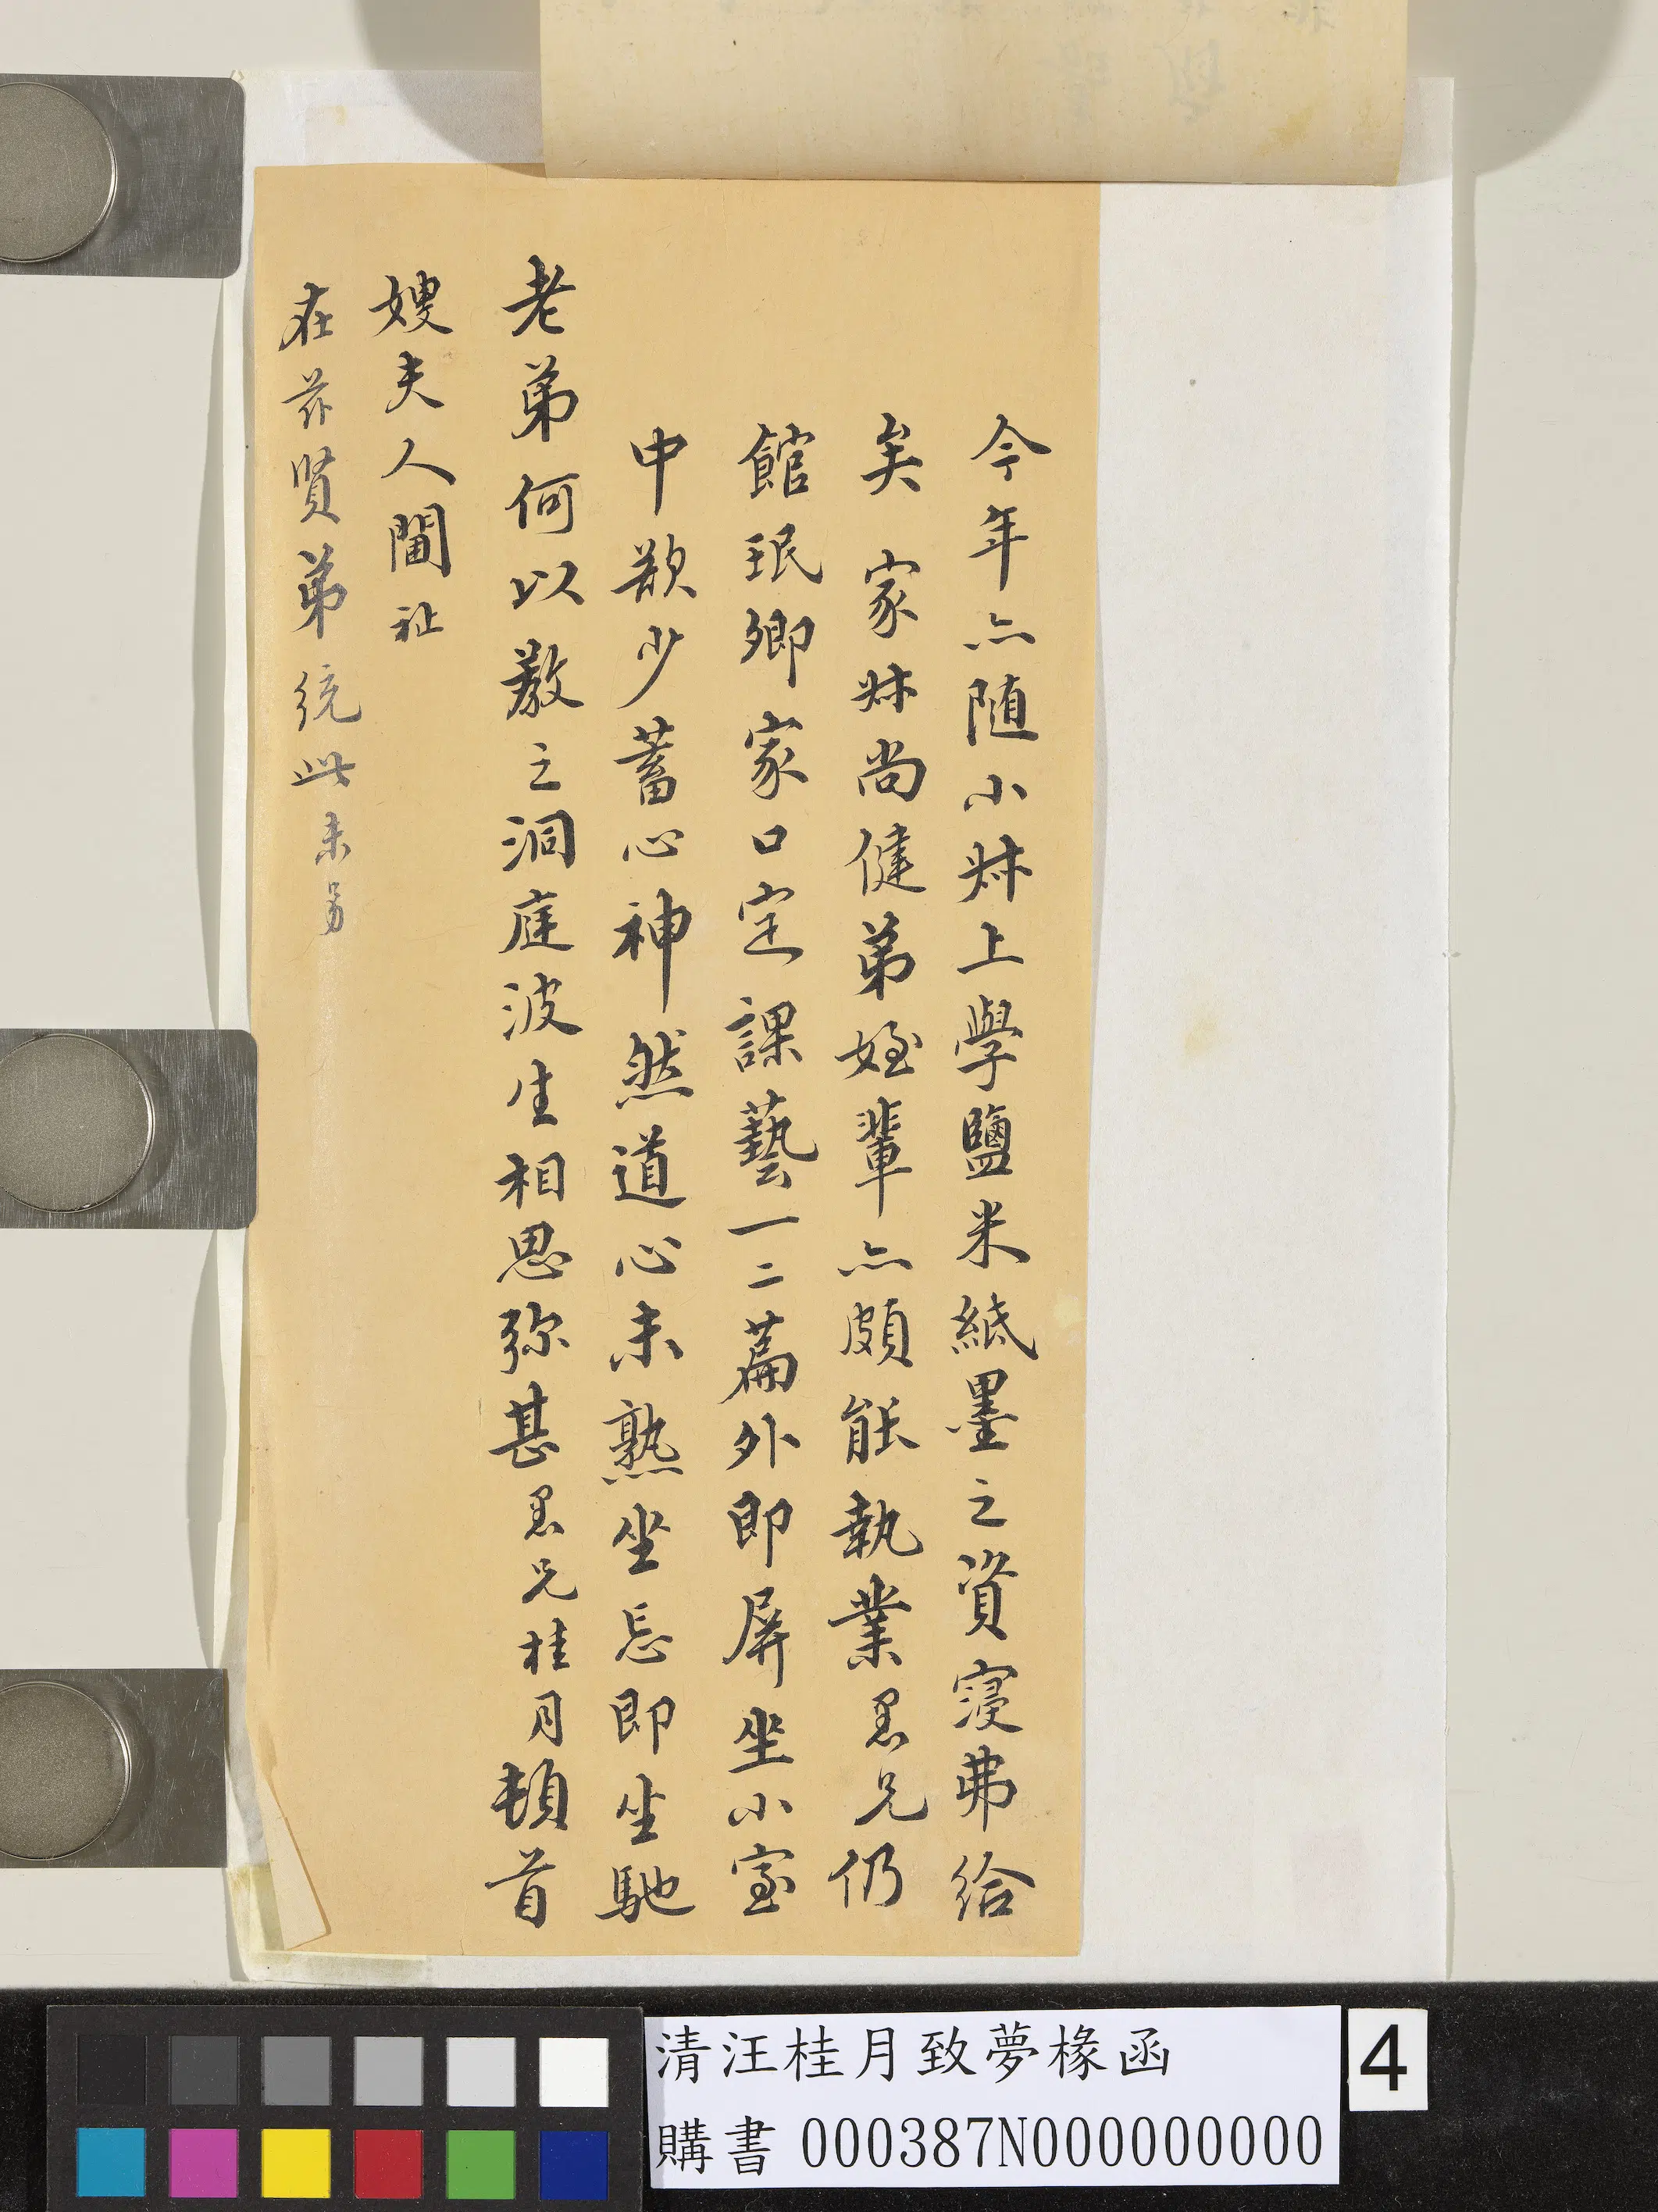 今年亦随小妹上學鹽米紙墨之資寖弗給
矣 家妹尚健弟姪輩亦頗能執業愚兄仍
館珉卿家口定課藝一二篇外即屏坐小室
中欲少蓄心神然道心未熟坐忘即坐馳
老弟何以教之洞庭波生相思弥甚愚兄桂月頓首
嫂夫人閫祉
在茲賢弟統此未另
清汪桂月致夢椽函
購書 000387N000000000
4